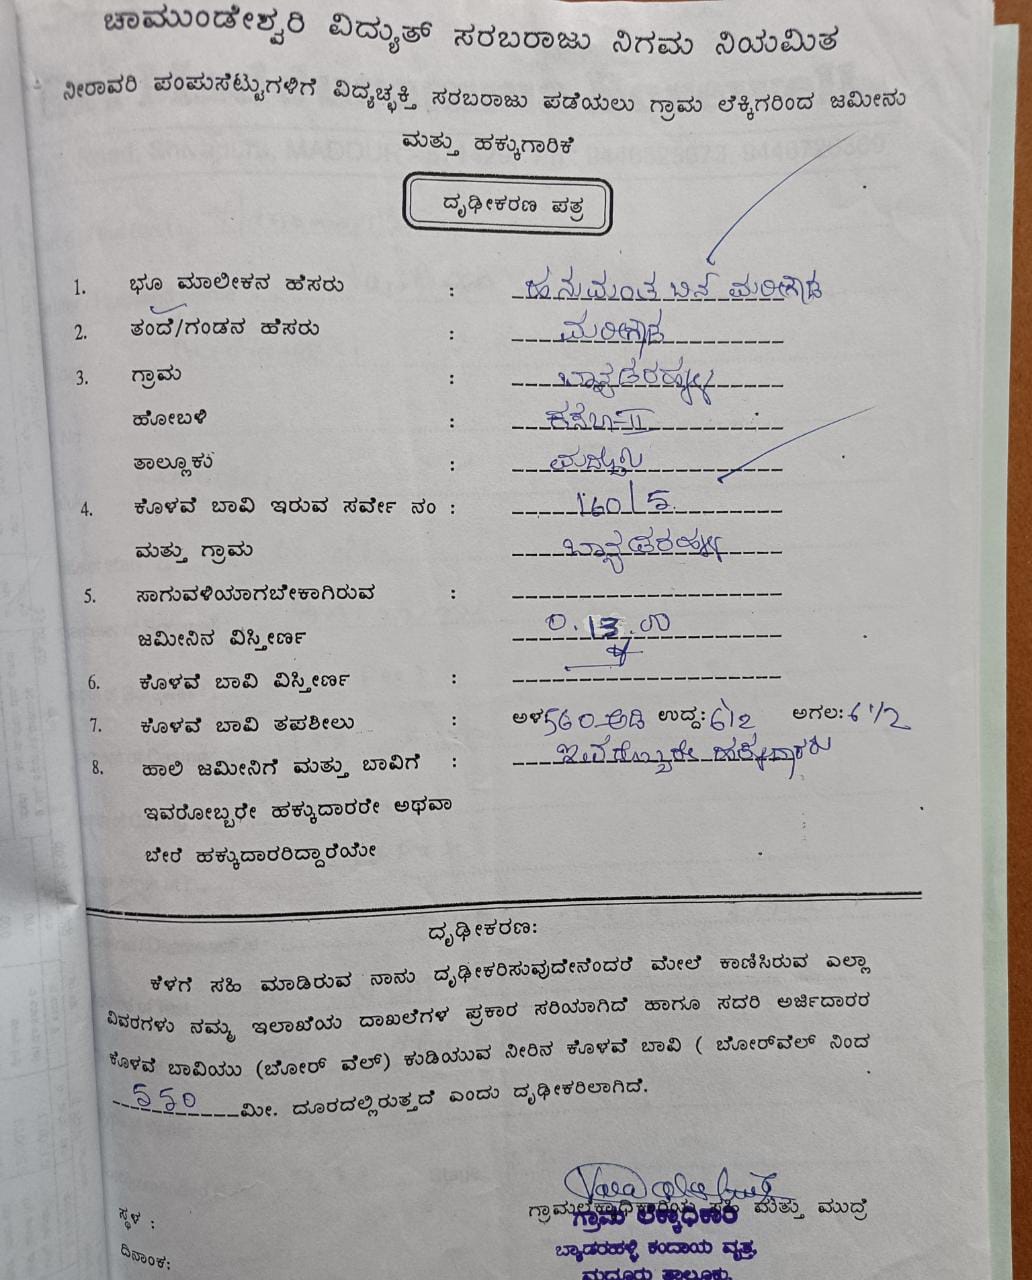 ಚಾಮುಂಡೇಶ್ವರಿ ವಿದ್ಯುತ್ ಸರಬರಾಜು ನಿಗಮ ನಿಯಮಿತ
ನೀರಾವರಿ ಪಂಪುಸೆಟ್ಟುಗಳಿಗೆ ವಿದ್ಯಚ್ಛಕ್ತಿ ಸರಬರಾಜು ಪಡೆಯಲು ಗ್ರಾಮ ಲೆಕ್ಕಿಗರಿಂದ ಜಮೀನು
ಮತ್ತು ಹಕ್ಕುಗಾರಿಕೆ
ದೃಢೀಕರಣ ಪತ್ರ
1. ಭೂ ಮಾಲೀಕನ ಹೆಸರು : ಹನುಮಂತ ಬಿನ್ ಮರೀಗೌಡ
2. ತಂದೆ/ಗಂಡನ ಹೆಸರು : ಮರೀಗೌಡ
3. ಗ್ರಾಮ : ಬ್ಯಾಡರಹಳ್ಳಿ
ಹೋಬಳಿ : ಕಸಬಾ-II
ತಾಲ್ಲೂಕು : ಮದ್ದೂರು
4. ಕೊಳವೆ ಬಾವಿ ಇರುವ ಸರ್ವೇ ನಂ : 160/5
ಮತ್ತು ಗ್ರಾಮ ಬ್ಯಾಡರಹಳ್ಳಿ
5. ಸಾಗುವಳಿಯಾಗಬೇಕಾಗಿರುವ :
ಜಮೀನಿನ ವಿಸ್ತೀರ್ಣ 0.13.00
6. ಕೊಳವೆ ಬಾವಿ ವಿಸ್ತೀರ್ಣ :
7. ಕೊಳವೆ ಬಾವಿ ತಪಶೀಲು : ಅಳ 560 ಅಡಿ ಉದ್ದ: 6½ ಅಗಲ: 6 1/2
8. ಹಾಲಿ ಜಮೀನಿಗೆ ಮತ್ತು ಬಾವಿಗೆ : ಇವರೊಬ್ಬರೇ ಹಕ್ಕುದಾರರು
ಇವರೋಬ್ಬರೇ ಹಕ್ಕುದಾರರೇ ಅಥವಾ
ಬೇರೆ ಹಕ್ಕುದಾರರಿದ್ದಾರೆಯೇ
ದೃಢೀಕರಣ:
ಕೆಳಗೆ ಸಹಿ ಮಾಡಿರುವ ನಾನು ದೃಢೀಕರಿಸುವುದೇನೆಂದರೆ ಮೇಲೆ ಕಾಣಿಸಿರುವ ಎಲ್ಲಾ
ವಿವರಗಳು ನಮ್ಮ ಇಲಾಖೆಯ ದಾಖಲೆಗಳ ಪ್ರಕಾರ ಸರಿಯಾಗಿದೆ ಹಾಗೂ ಸದರಿ ಅರ್ಜಿದಾರರ
ಕೊಳವೆ ಬಾವಿಯು (ಬೋರ್ ವೆಲ್) ಕುಡಿಯುವ ನೀರಿನ ಕೊಳವೆ ಬಾವಿ ( ಬೋರ್‌ವೆಲ್ ನಿಂದ
550 ಮೀ. ದೂರದಲ್ಲಿರುತ್ತದೆ ಎಂದು ದೃಢೀಕರಿಲಾಗಿದೆ.
ಗ್ರಾಮಲೆಕ್ಕಾಧಿಕಾರಿಯ ಸಹಿ ಮತ್ತು ಮುದ್ರೆ
ಸ್ಥಳ :
ಗ್ರಾಮ ಲೆಕ್ಕಾಧಿಕಾರಿ
ದಿನಾಂಕ:
ಬ್ಯಾಡರಹಳ್ಳಿ ಕಂದಾಯ ವೃತ್ತ,
ಮದ್ದೂರು ತಾಲ್ಲೂಕು.